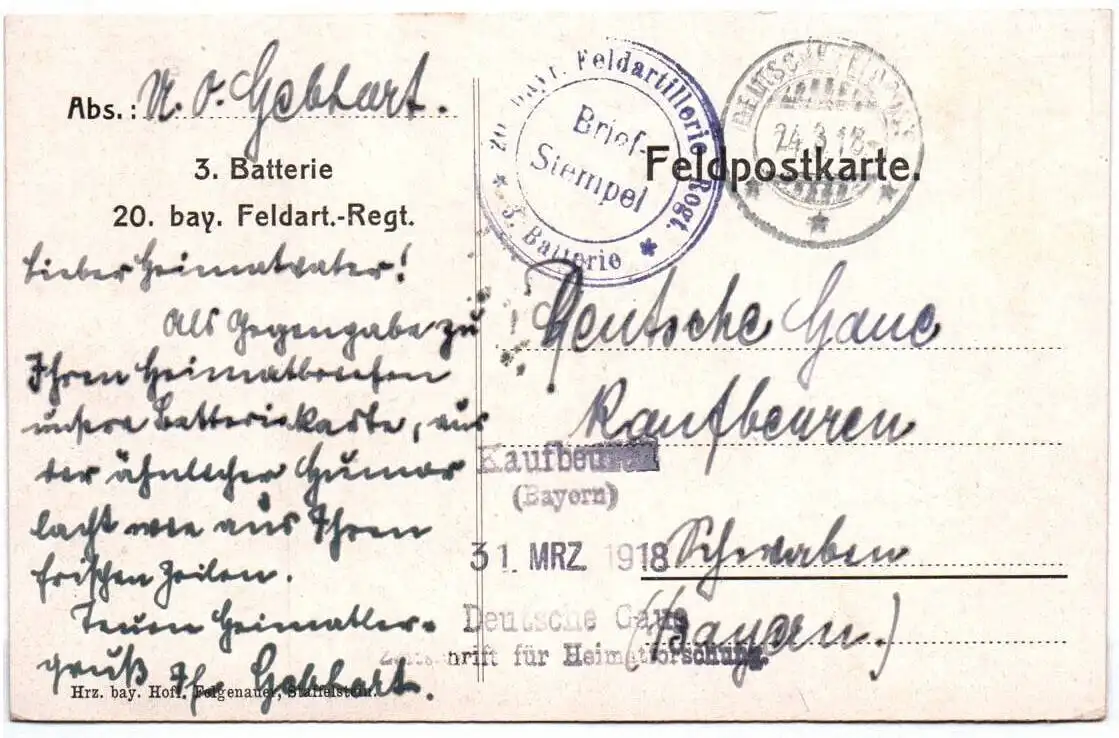 Abs.: U. O. Gebhart.
3. Batterie
20. bay. Feldart.-Regt.
Lieber Heimatvater!
Als Gegengabe zu
Ihren Heimatbriefen
unsere Batteriekarte, aus
der ähnlicher Humor
lacht wie aus Ihren
frischen Zeilen.
Treuen Heimatler-
gruß Ihr Gebhart.
Hrz. bay. Hofl. Felgenauer, Staffelstein.
20. bayr. Feldartillerie Regt.
* 3. Batterie *
Brief-
Stempel
Feldpostkarte.
DEUTSCHE FELDPOST
24.3.18
Deutsche Gaue
Kaufbeuren
Schwaben
(Bayern.)
Kaufbeuren
(Bayern)
31. MRZ. 1918
Deutsche Gaue
Zeitschrift für Heimatforschung.